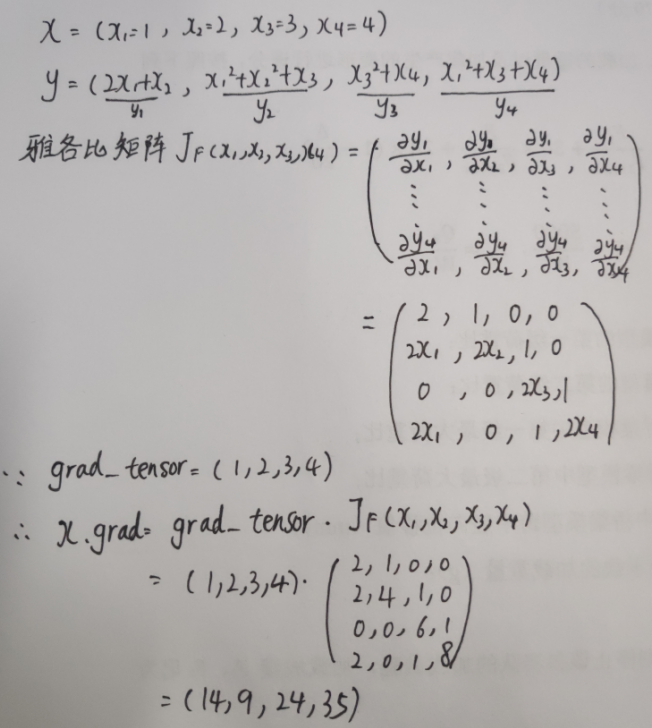 x = (x₁=1, x₂=2, x₃=3, x₄=4)
y = (2x₁+x₂, x₁²+x₂²+x₃, x₃²+x₄, x₁²+x₃+x₄)
y₁ y₂ y₃ y₄
雅各比矩阵 J_F(x₁,x₂,x₃,x₄) = ( ∂y₁/∂x₁, ∂y₁/∂x₂, ∂y₁/∂x₃, ∂y₁/∂x₄
⋮ ⋮ ⋮ ⋮
∂y₄/∂x₁, ∂y₄/∂x₂, ∂y₄/∂x₃, ∂y₄/∂x₄ )
= ( 2, 1, 0, 0
2x₁, 2x₂, 1, 0
0, 0, 2x₃, 1
2x₁, 0, 1, 2x₄ )
∵ grad_tensor = (1,2,3,4)
∴ x.grad = grad_tensor · J_F(x₁,x₂,x₃,x₄)
= (1,2,3,4) · ( 2, 1, 0, 0
2, 4, 1, 0
0, 0, 6, 1
2, 0, 1, 8 )
= (14, 9, 24, 35)